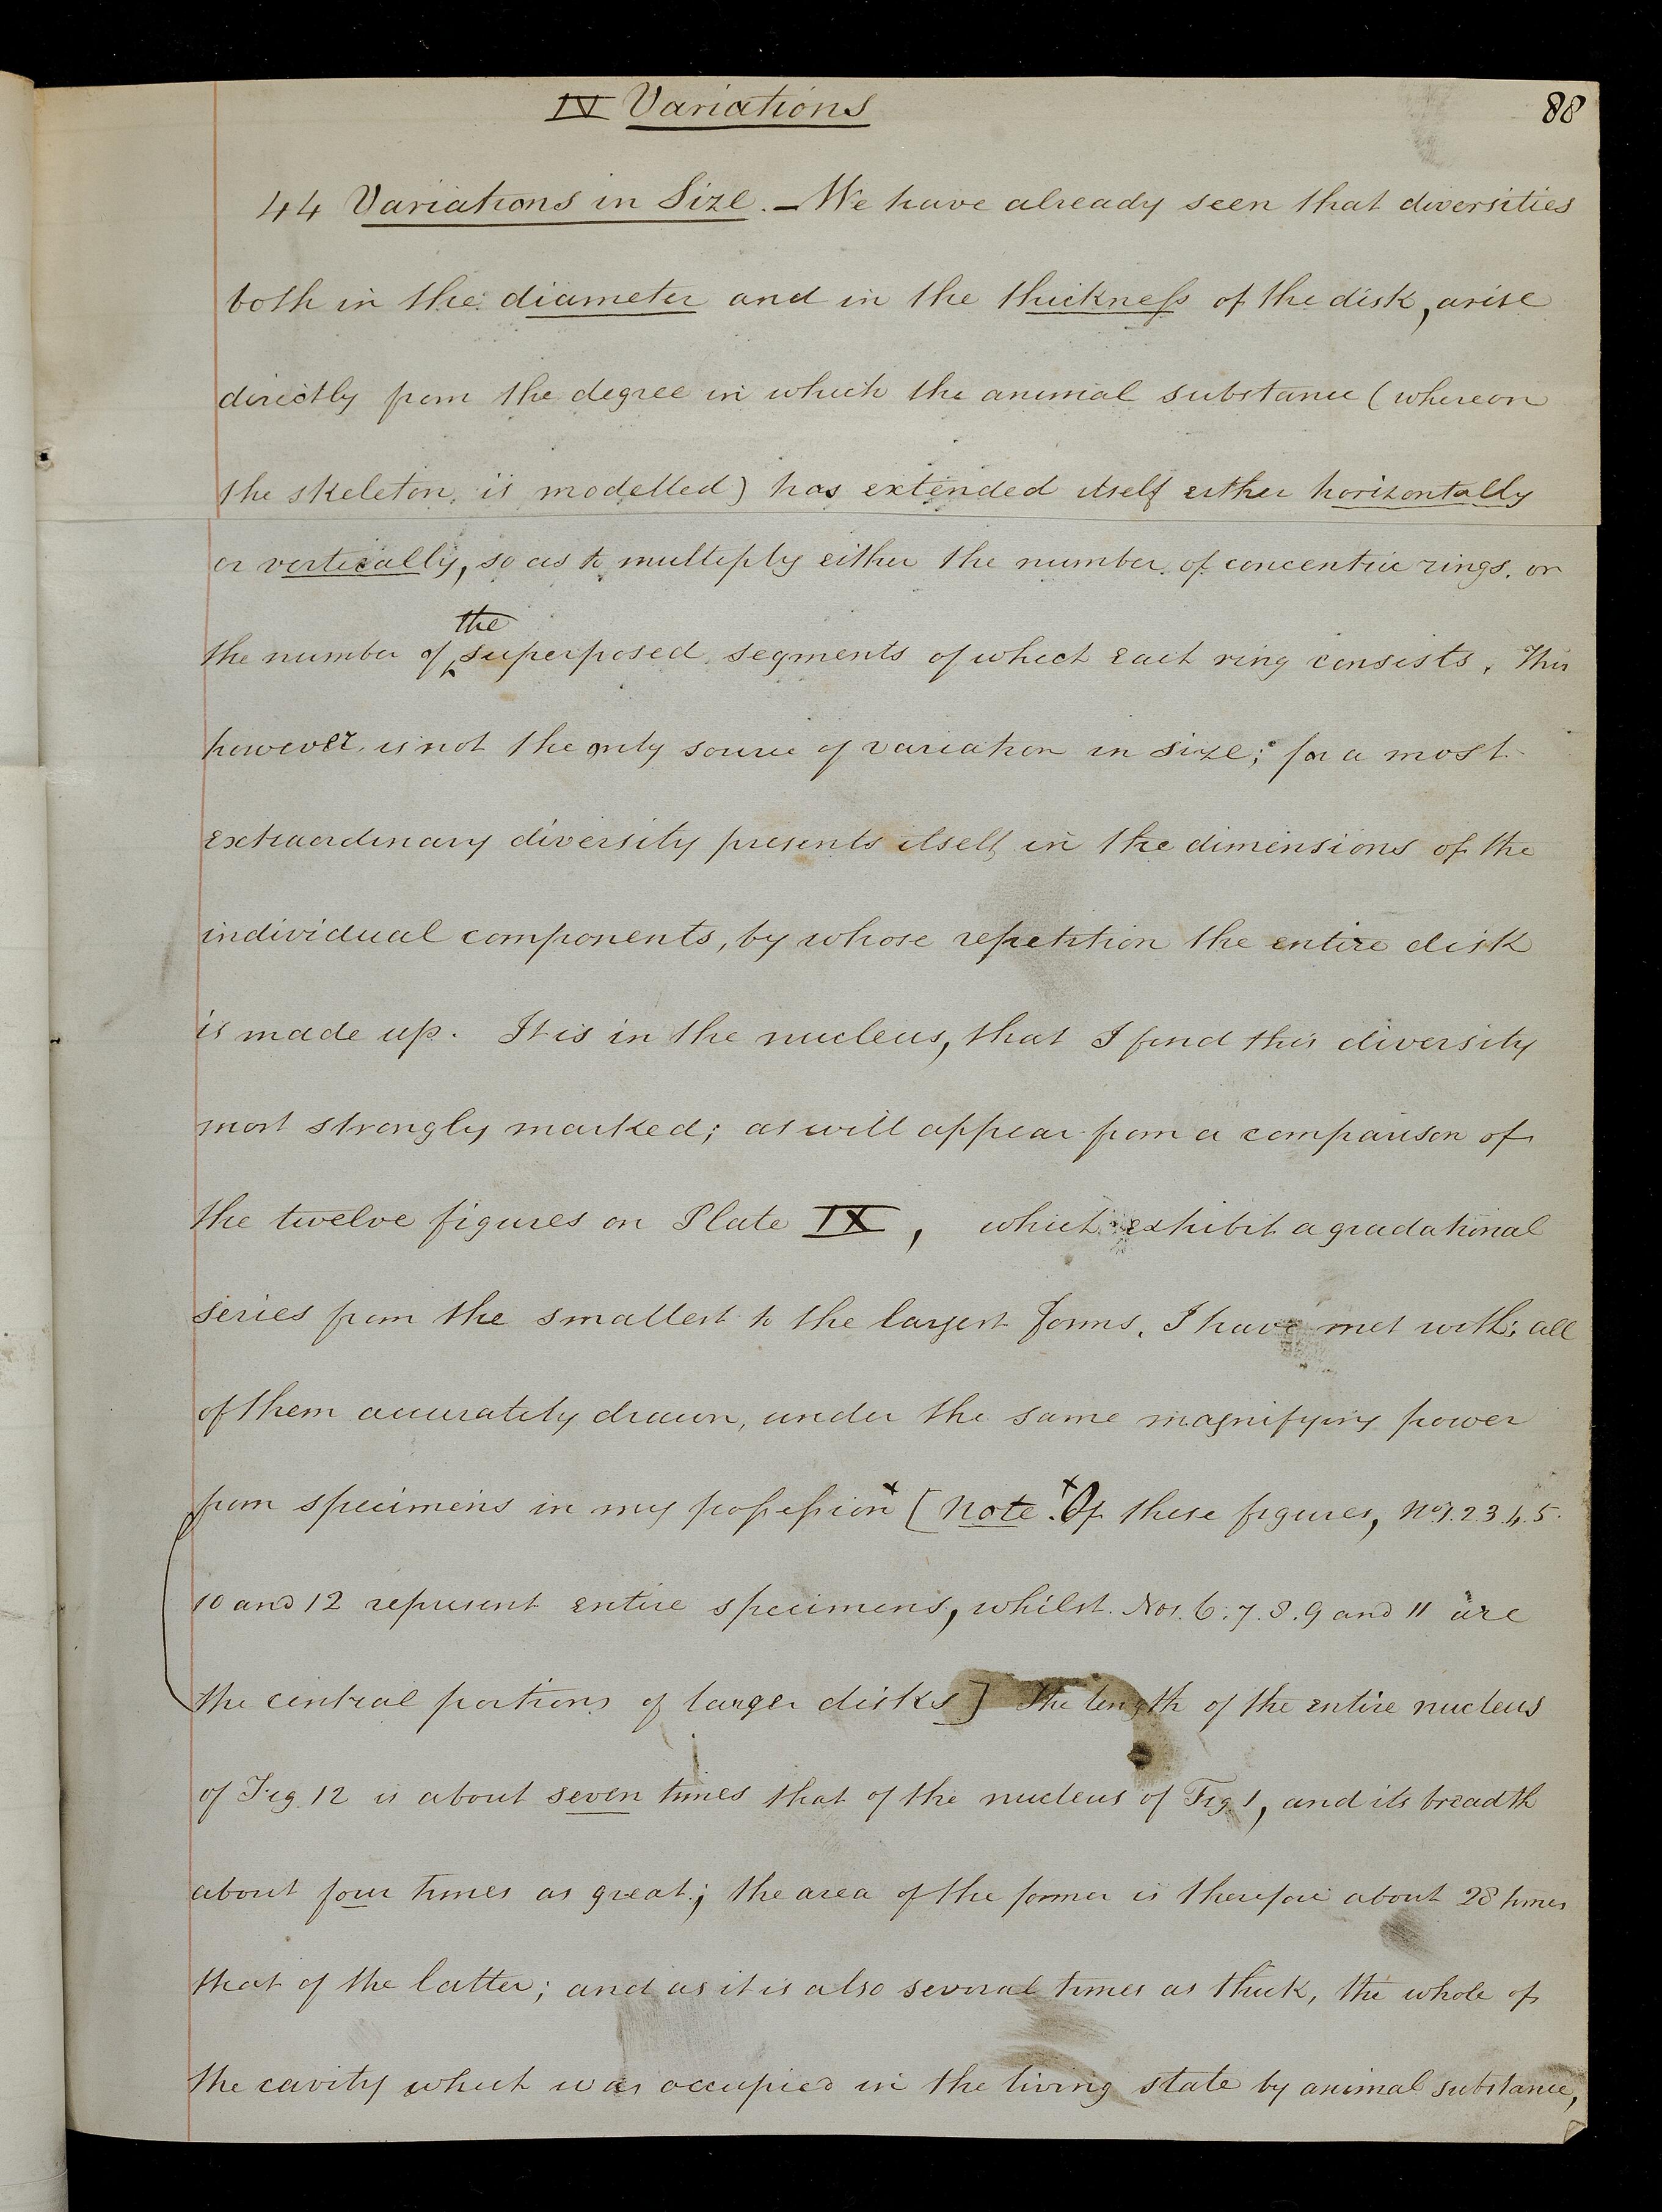 IV Variations
88
44 Variations in Size. — We have already seen that diversities
both in the diameter and in the thickness of the disk, arise
directly from the degree in which the animal substance (whereon
the skeleton, is modelled) has extended itself either horizontally
or vertically, so as to multiply either the number of concentric rings. or
the
the number of superposed segments of which each ring consists. This
however, is not the only source of variation in size; for a most
extraordinary diversity presents itself in the dimensions of the
individual components, by whose repetition the entire disk
is made up. It is in the nucleus, that I find this diversity
most strongly marked; as will appear from a comparison of
the twelve figures on Plate IX, which exhibit a gradational
series from the smallest to the largest forms. I have met with; all
of them accurately drawn, under the same magnifying power
from specimens in my possession x [Note. x Of these figures, Nos. 1. 2. 3. 4. 5.
10 and 12 represent entire specimens, whilst. Nos. 6. 7. 8. 9 and 11 are
the central portions of larger disks] The length of the entire nucleus
of Fig. 12 is about seven times that of the nucleus of Fig 1, and its breadth
about four times as great; the area of the former is therefore about 28 times
that of the latter; and as it is also several times as thick, the whole of
the cavity which was occupied in the living state by animal substance,